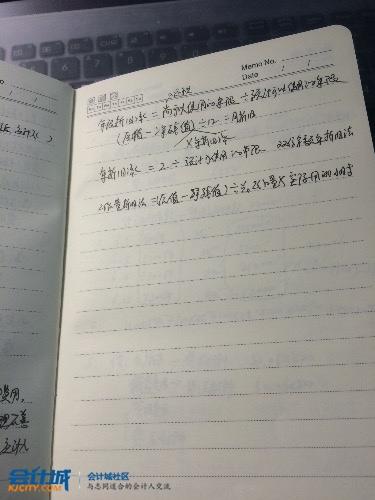 Memo No.
Date / /
年折旧率 = 尚可以使用的年限 ÷ 预计可以使用的年限
(原值 - 净残值) ÷ 12 = 月折旧
X年折旧率
年折旧率 = 2 ÷ 预计可使用的年限 双倍余额年折旧法
工作量折旧法 = (原值 - 净残值) ÷ 总工作量 X 实际用的小时
费用,
会计城
KJCITY.COM
会计城社区
与志同道合的会计人交流